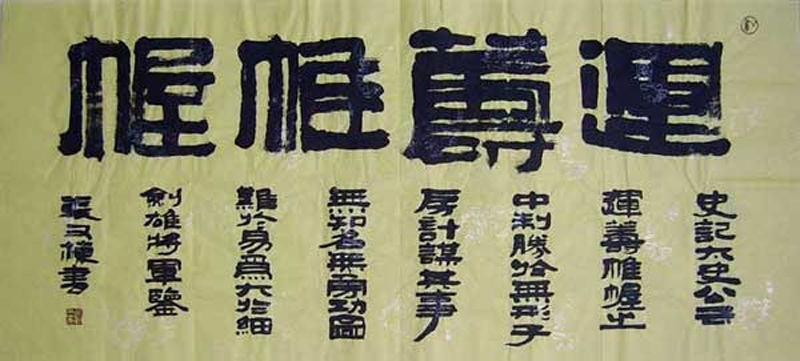 運籌帷幄
史記太史公云
運籌帷幄之
中制勝於無形子
房計謀其事
無知名無勇功圖
難於易為大於細
劍雄將軍鑒
張又棟書